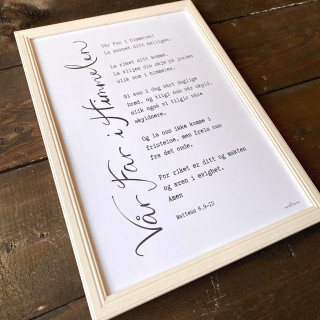 Vår Far i Himmelen
Vår Far i himmelen!
La navnet ditt helliges.
La riket ditt komme.
La viljen din skje på jorden
slik som i himmelen.
Gi oss i dag vårt daglige
brød, og tilgi oss vår skyld,
slik også vi tilgir våre
skyldnere.
Og la oss ikke komme i
fristelse, men frels oss
fra det onde.
For riket er ditt og makten
og æren i evighet.
Amen
Matteus 6,9-13